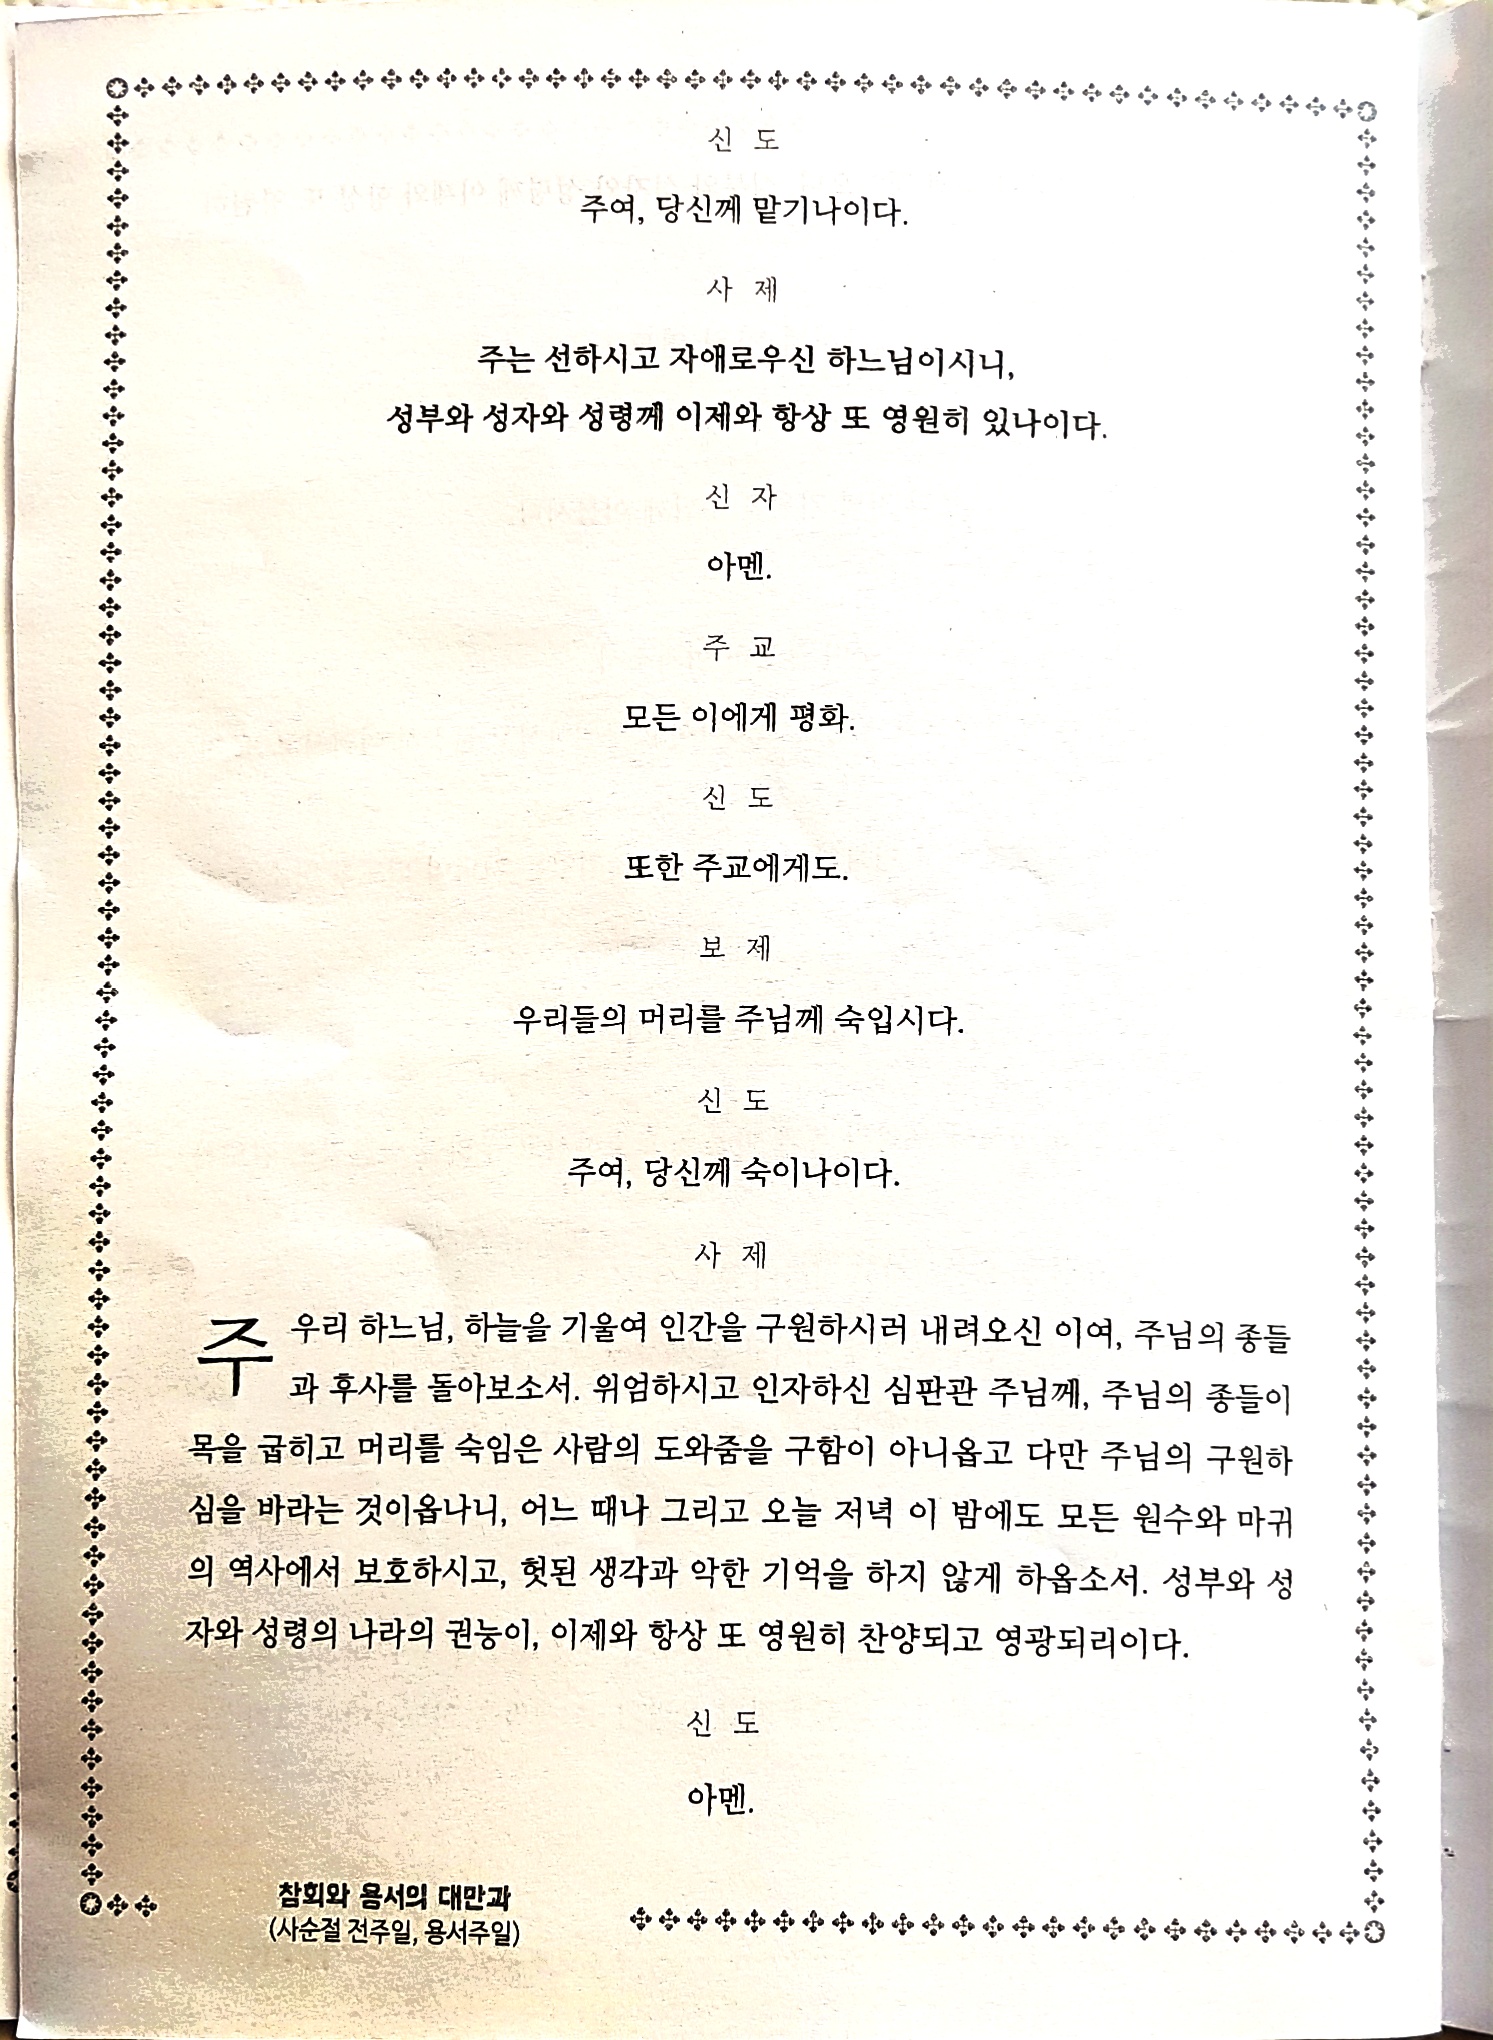 신 도
주여, 당신께 맡기나이다.
사 제
주는 선하시고 자애로우신 하느님이시니,
성부와 성자와 성령께 이제와 항상 또 영원히 있나이다.
신 자
아멘.
주 교
모든 이에게 평화.
신 도
또한 주교에게도.
보 제
우리들의 머리를 주님께 숙입시다.
신 도
주여, 당신께 숙이나이다.
사 제
주 우리 하느님, 하늘을 기울여 인간을 구원하시러 내려오신 이여, 주님의 종들
과 후사를 돌아보소서. 위엄하시고 인자하신 심판관 주님께, 주님의 종들이
목을 굽히고 머리를 숙임은 사람의 도와줌을 구함이 아니옵고 다만 주님의 구원하
심을 바라는 것이옵나니, 어느 때나 그리고 오늘 저녁 이 밤에도 모든 원수와 마귀
의 역사에서 보호하시고, 헛된 생각과 악한 기억을 하지 않게 하옵소서. 성부와 성
자와 성령의 나라의 권능이, 이제와 항상 또 영원히 찬양되고 영광되리이다.
신 도
아멘.
참회와 용서의 대만과
(사순절 전주일, 용서주일)